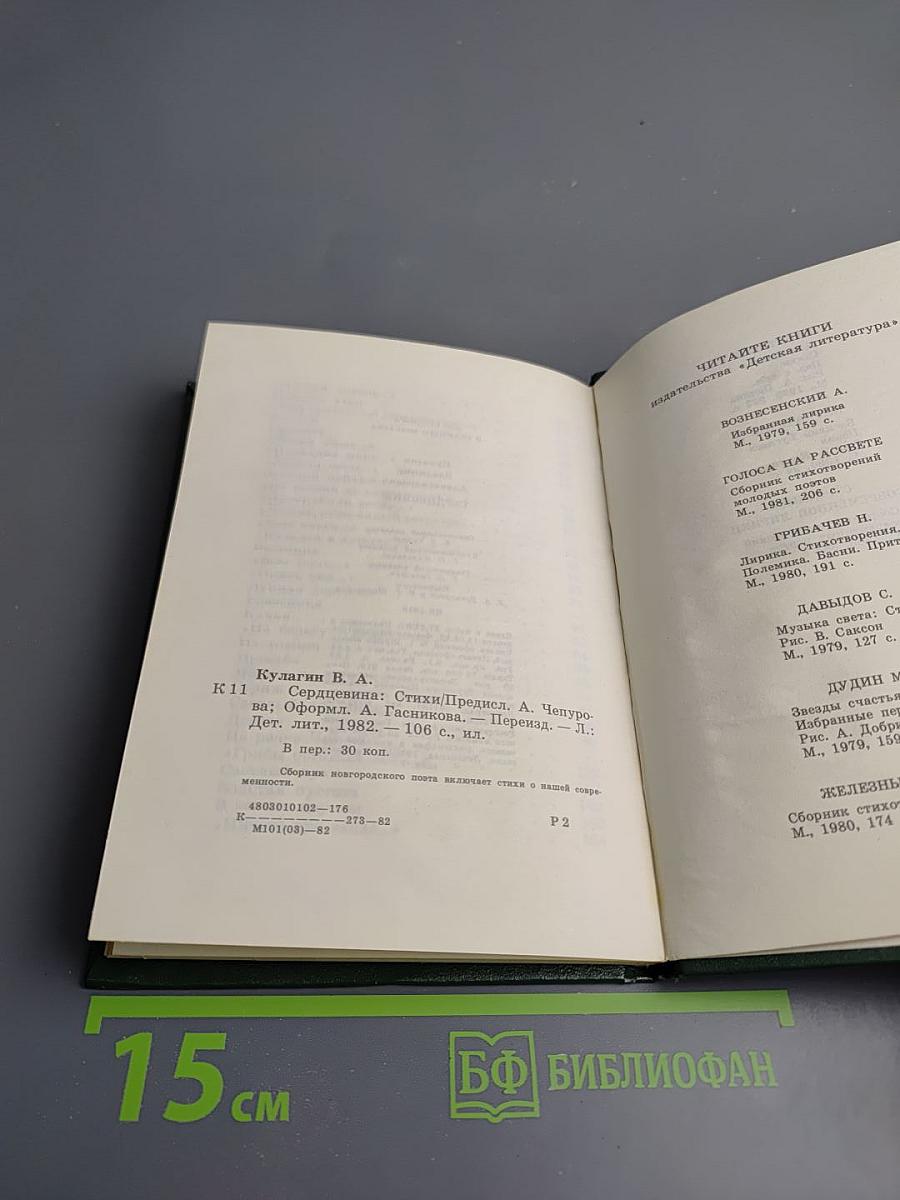 Кулагин В. А.
К 11 Сердцевина: Стихи/Предисл. А. Чепуро-
ва; Оформл. А. Гасникова. — Переизд. — Л.:
Дет. лит., 1982. — 106 с., ил.
В пер.: 30 коп.
Сборник новгородского поэта включает стихи о нашей совре-
менности.
4803010102—176
К————————273—82
М101(03)—82
Р 2
ЧИТАЙТЕ КНИГИ
издательства «Детская литература»
ВОЗНЕСЕНСКИЙ А.
Избранная лирика
М., 1979, 159 с.
ГОЛОСА НА РАССВЕТЕ
Сборник стихотворений
молодых поэтов
М., 1981, 206 с.
ГРИБАЧЕВ Н.
Лирика. Стихотворения.
Полемика. Басни. Прит
М., 1980, 191 с.
ДАВЫДОВ С.
Музыка света: Ст
Рис. В. Саксон
М., 1979, 127 с.
ДУДИН М
Звезды счастья
Избранные пер
Рис. А. Добри
М., 1979, 159
ЖЕЛЕЗНЫ
Сборник стихот
М., 1980, 174
15 см
БФ БИБЛИОФАН